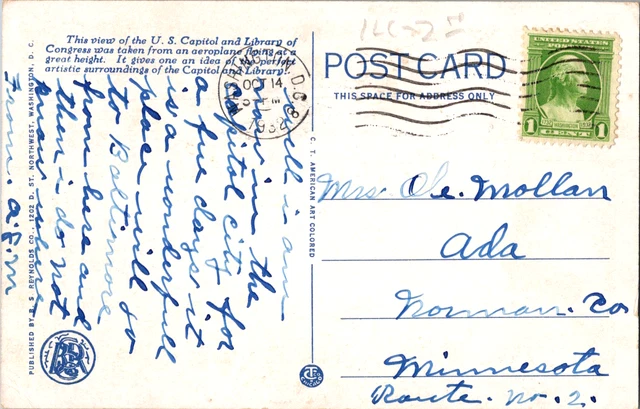 This view of the U. S. Capitol and Library of
Congress was taken from an aeroplane flying at a
great height. It gives one an idea of the perfect
artistic surroundings of the Capitol and Library.
POST CARD
THIS SPACE FOR ADDRESS ONLY
WASHINGTON, D.C.
OCT 14
1932
UNITED STATES
POSTAGE
1 1
1LC-2
well i am
now in the
capitol city for
a few days it
is a wonderfull
place will go
to Baltimore
from here and
then i do not
know where
From. A. F. M
Mrs. Ole. Mollan
Ada
Norman. Co
Minnesota
Route. No. 2.
PUBLISHED BY B. S. REYNOLDS CO., 1202 D. ST. NORTHWEST, WASHINGTON, D. C.
C. T. AMERICAN ART COLORED